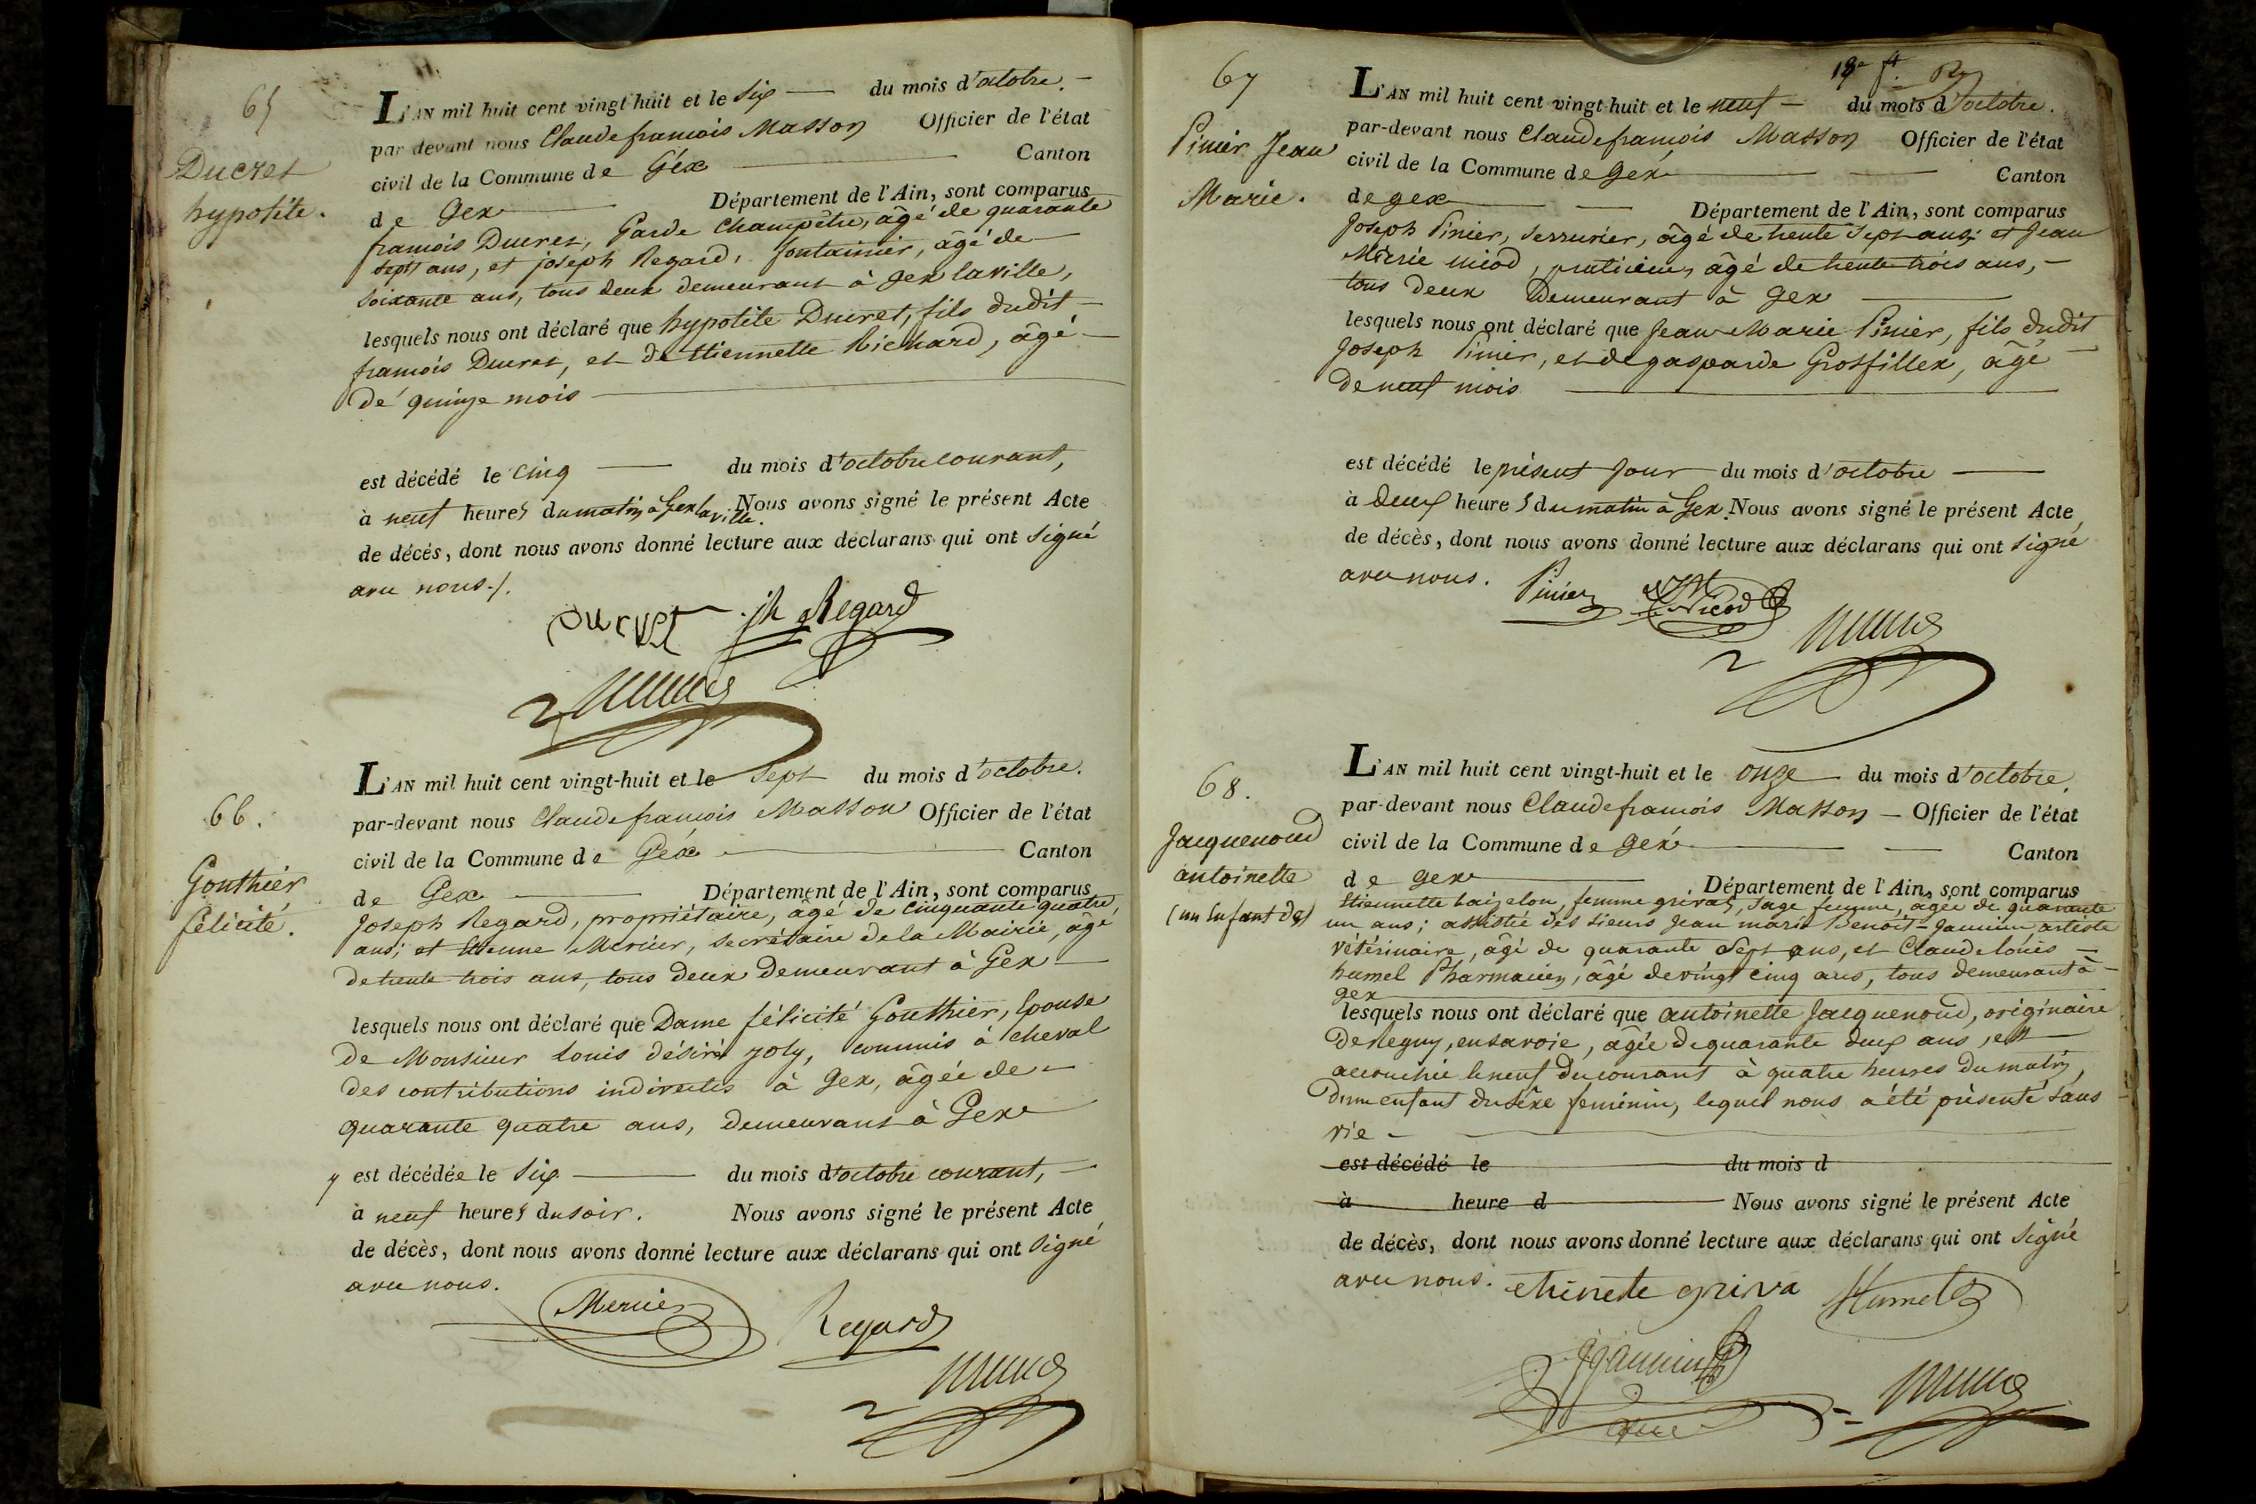 65
Ducret
hypolite.
L'AN mil huit cent vingt-huit et le six du mois d'octobre.
par devant nous Claude françois Masson Officier de l'état
civil de la Commune de Géx Canton
de Gex Département de l'Ain, sont comparus
françois Ducret, Garde Champêtre, âgé de quarante
sept ans, et joseph Regard, fontainier, âgé de
soixante ans, tous deux demeurant à Gex la ville,
lesquels nous ont déclaré que hypolite Ducret, fils dudit
françois Ducret, et de Etiennette Richard, âgé
de quinze mois
est décédé le cinq du mois d'octobre courant,
à neuf heures du matin à Gex la ville. Nous avons signé le présent Acte
de décès, dont nous avons donné lecture aux déclarans qui ont signé
avec nous./.
Ducret jh Regard
66.
Gouthier
félicité.
L'AN mil huit cent vingt-huit et le sept du mois d'octobre.
par-devant nous Claude françois Masson Officier de l'état
civil de la Commune de Géx Canton
de Gex Département de l'Ain, sont comparus
Joseph Regard, propriétaire, âgé de cinquante quatre
ans; et Etienne Mercier, secrétaire de la Mairie, âgé
de trente trois ans, tous deux demeurant à Gex
lesquels nous ont déclaré que Dame félicité Gouthier, Epouse
de Monsieur Louis désiré Joly, commis à cheval
des contributions indirectes à Gex, âgée de
quarante quatre ans, demeurant à Gex
y est décédée le six du mois d'octobre courant,
à neuf heures du soir. Nous avons signé le présent Acte
de décès, dont nous avons donné lecture aux déclarans qui ont signé
avec nous.
Mercier Regard
67
Pinier Jean
Marie.
L'AN mil huit cent vingt-huit et le neuf du mois d'octobre.
par-devant nous Claude françois Masson Officier de l'état
civil de la Commune de Géx Canton
de gex Département de l'Ain, sont comparus
Joseph Pinier, serrurier, âgé de trente sept ans; et Jean
Marie nicod, praticien, âgé de trente trois ans,
tous deux Demeurant à Gex
lesquels nous ont déclaré que Jean Marie Pinier, fils dudit
Joseph Pinier, et de gasparde Grosfillex, âgé
de neuf mois
est décédé le présent jour du mois d'octobre
à deux heures du matin à Gex. Nous avons signé le présent Acte
de décès, dont nous avons donné lecture aux déclarans qui ont signé
avec nous. Pinier Nicod
68.
Jacquenoud
antoinette
(un Enfant de)
L'AN mil huit cent vingt-huit et le onze du mois d'octobre.
par-devant nous Claude françois Masson Officier de l'état
civil de la Commune de Géx Canton
de gex Département de l'Ain, sont comparus
Etiennette femme grivas, sage femme, âgée de quarante
un ans; assistée des sieurs Jean marie Benoit-Jannin, artiste
vétérinaire, âgé de quarante sept ans, et Claude louis
humel Pharmacien, âgé de vingt cinq ans, tous demeurant à
gex
lesquels nous ont déclaré que antoinette Jacquenoud, originaire
de Regny, en savoie, âgée de quarante deux ans, est
accouchée le neuf du courant à quatre heures du matin,
d'un enfant du sèxe féminin, lequel nous a été présenté sans
vie
est décédé le du mois d
à heure d Nous avons signé le présent Acte
de décès, dont nous avons donné lecture aux déclarans qui ont signé
avec nous. etinete griva Humel
Jannin